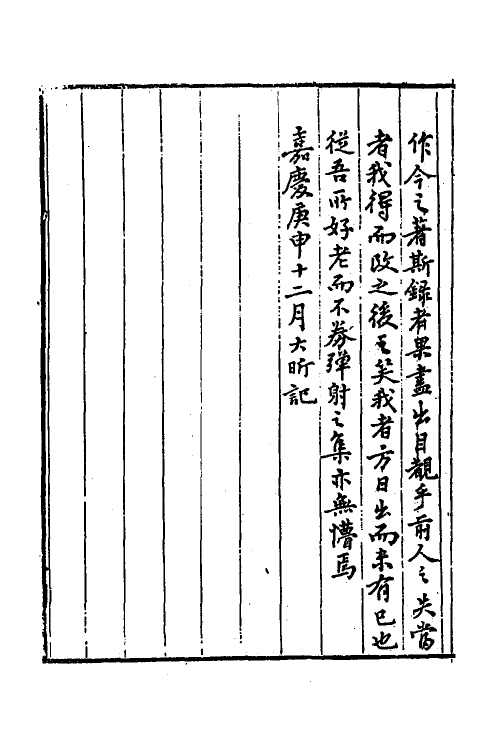 作今之著斯錄者果盡出目覩乎前人之失當
者我得而改之後之笑我者方日出而未有已也
從吾所好老而不券彈射之集亦無懵焉
嘉慶庚申十二月大昕記